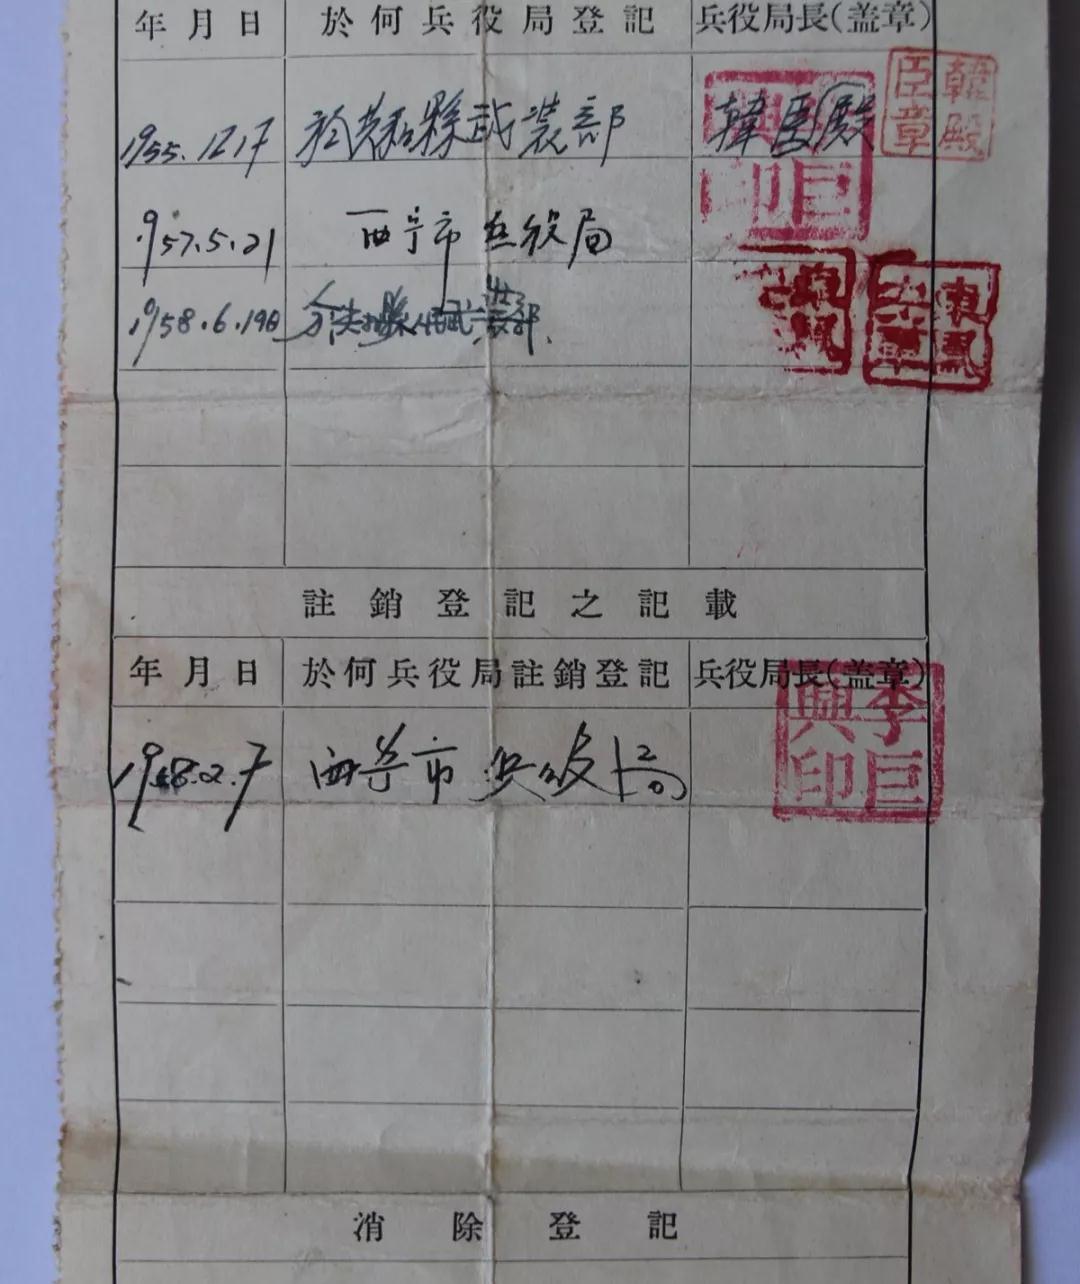 年月日 於何兵役局登記 兵役局長(盖章)
1955.12.17 於 縣武裝部 韓臣殿
韓殿臣章
1957.5.21 西宁市兵役局
1958.6.19 縣 武裝部
註銷登記之記載
年月日 於何兵役局註銷登記 兵役局長(盖章)
1958.2.7 西宁市兵役局
李巨興印
消除登記